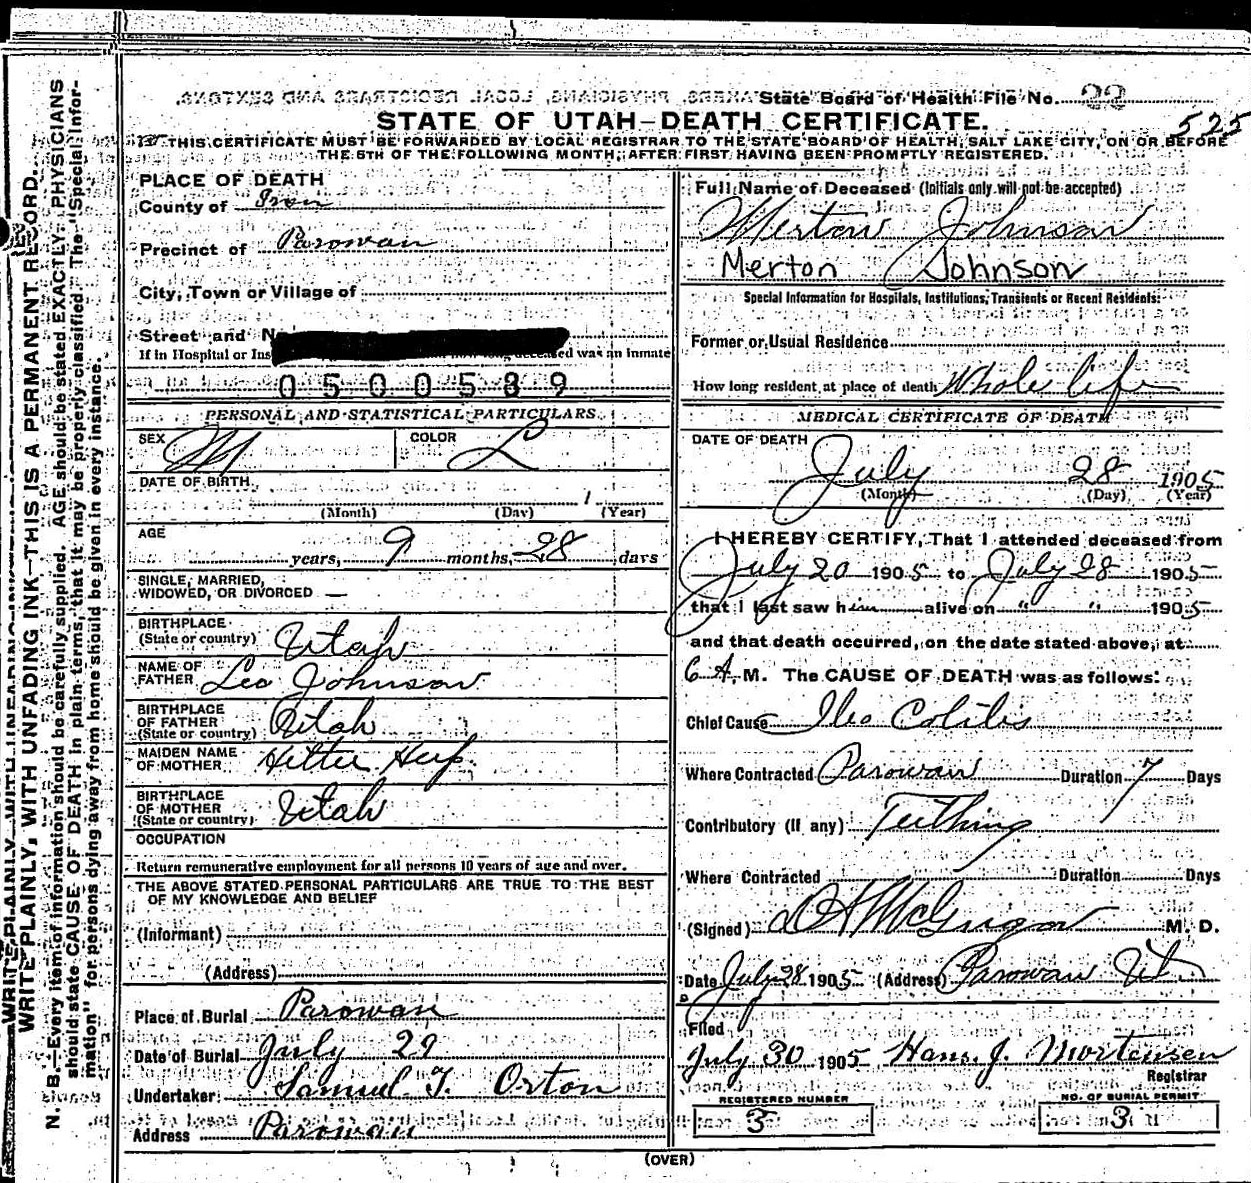 State Board of Health File No. 22
STATE OF UTAH—DEATH CERTIFICATE.
525
THIS CERTIFICATE MUST BE FORWARDED BY LOCAL REGISTRAR TO THE STATE BOARD OF HEALTH, SALT LAKE CITY, ON OR BEFORE
THE 5TH OF THE FOLLOWING MONTH, AFTER FIRST HAVING BEEN PROMPTLY REGISTERED.
WRITE PLAINLY, WITH UNFADING INK—THIS IS A PERMANENT RECORD.
N. B.—Every item of information should be carefully supplied. AGE should be stated EXACTLY. PHYSICIANS
should state CAUSE OF DEATH in plain terms, that it may be properly classified. The "Special Infor-
mation" for persons dying away from home should be given in every instance.
PLACE OF DEATH
County of Iron
Precinct of Parowan
City, Town or Village of
Street and N
If in Hospital or Ins deceased was an inmate
0500589
PERSONAL AND STATISTICAL PARTICULARS.
SEX M COLOR L
DATE OF BIRTH
(Month) (Day) (Year)
AGE
years, 9 months, 28 days
SINGLE, MARRIED,
WIDOWED, OR DIVORCED —
BIRTHPLACE
(State or country) Utah
NAME OF
FATHER Leo Johnson
BIRTHPLACE
OF FATHER
(State or country) Utah
MAIDEN NAME
OF MOTHER
BIRTHPLACE
OF MOTHER
(State or country) Utah
OCCUPATION
Return remunerative employment for all persons 10 years of age and over.
THE ABOVE STATED PERSONAL PARTICULARS ARE TRUE TO THE BEST
OF MY KNOWLEDGE AND BELIEF
(Informant)
(Address)
Place of Burial Parowan
Date of Burial July 29
Undertaker Samuel T. Orton
Address Parowan
Full Name of Deceased (Initials only will not be accepted)
Merton Johnson
Merton Johnson
Special Information for Hospitals, Institutions, Transients or Recent Residents:
Former or Usual Residence
How long resident at place of death Whole life
MEDICAL CERTIFICATE OF DEATH
DATE OF DEATH
July 28 1905
(Month) (Day) (Year)
I HEREBY CERTIFY, That I attended deceased from
July 20 1905 to July 28 1905
that I last saw him alive on " " 1905
and that death occurred, on the date stated above, at
6 A. M. The CAUSE OF DEATH was as follows:
Chief Cause Ileo Colitis
Where Contracted Parowan Duration 7 Days
Contributory (if any) Teething
Where Contracted Duration Days
(Signed) McGregor M. D.
Date July 28 1905 (Address) Parowan Ut
Filed
July 30 1905 Hans. J. Mortensen
Registrar
REGISTERED NUMBER
3
NO. OF BURIAL PERMIT
3
(OVER)